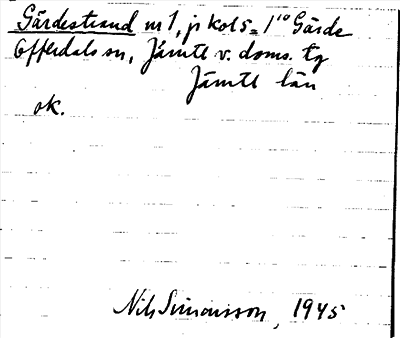 Gärdestrand nr 1, jr kol 5 = 1¹⁰ Gärde
Offerdals sn, Jämtl v. doms. tg
Jämtl län
ok.
Nils Simonsson, 1945